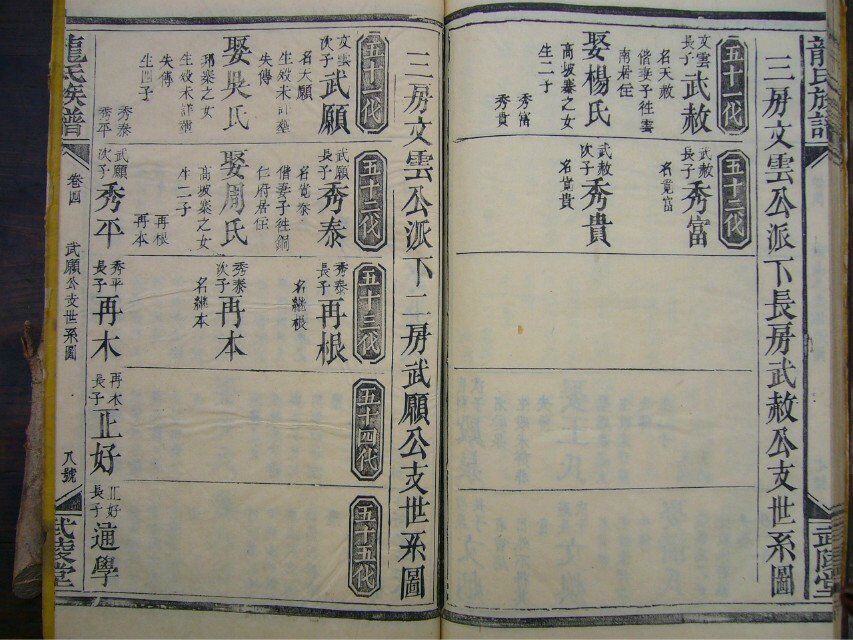 龍氏族譜
三房文雲公派下長房武赦公支世系圖
五十一代
文雲長子 武赦
名天赦
偕妻子往雲南居住
娶楊氏
高坡寨之女
生二子
秀富
秀貴
五十二代
武赦長子 秀富
名寛富
武赦次子 秀貴
名寛貴
三房文雲公派下二房武願公支世系圖
五十一代
文雲次子 武願
名天願
生歿未詳塟失傳
娶吳氏
邦寨之女
生歿未詳塟失傳
生四子
秀泰
秀平
五十二代
武願長子 秀泰
名寛泰
偕妻子往銅仁府居住
娶周氏
高坡寨之女
生二子
再根
再本
武願次子 秀平
五十三代
秀泰長子 再根
名繼根
秀泰次子 再本
名繼本
秀平長子 再木
五十四代
再木長子 正好
五十五代
正好長子 通學
龍氏族譜
卷四
武願公支世系圖
八號
武陵堂